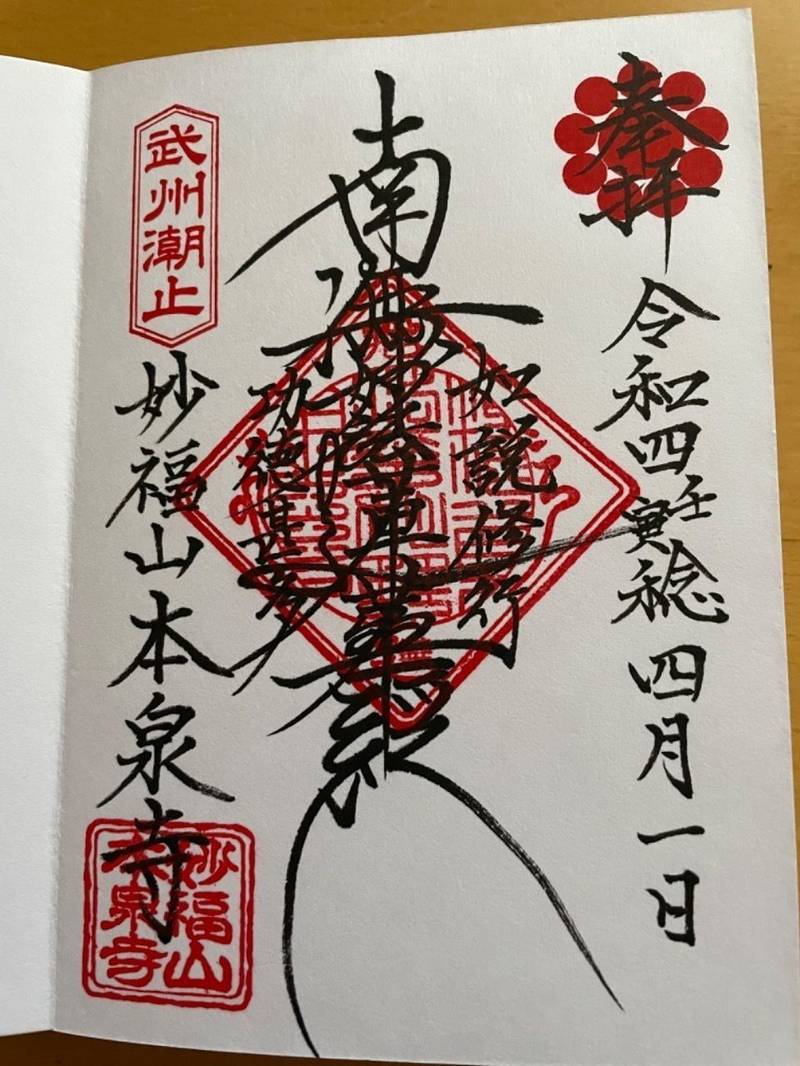 奉拝
令和四壬寅稔四月一日
如説修行
南無妙法蓮華経
功徳甚多
武州潮止
妙福山本泉寺
妙福山
本泉寺